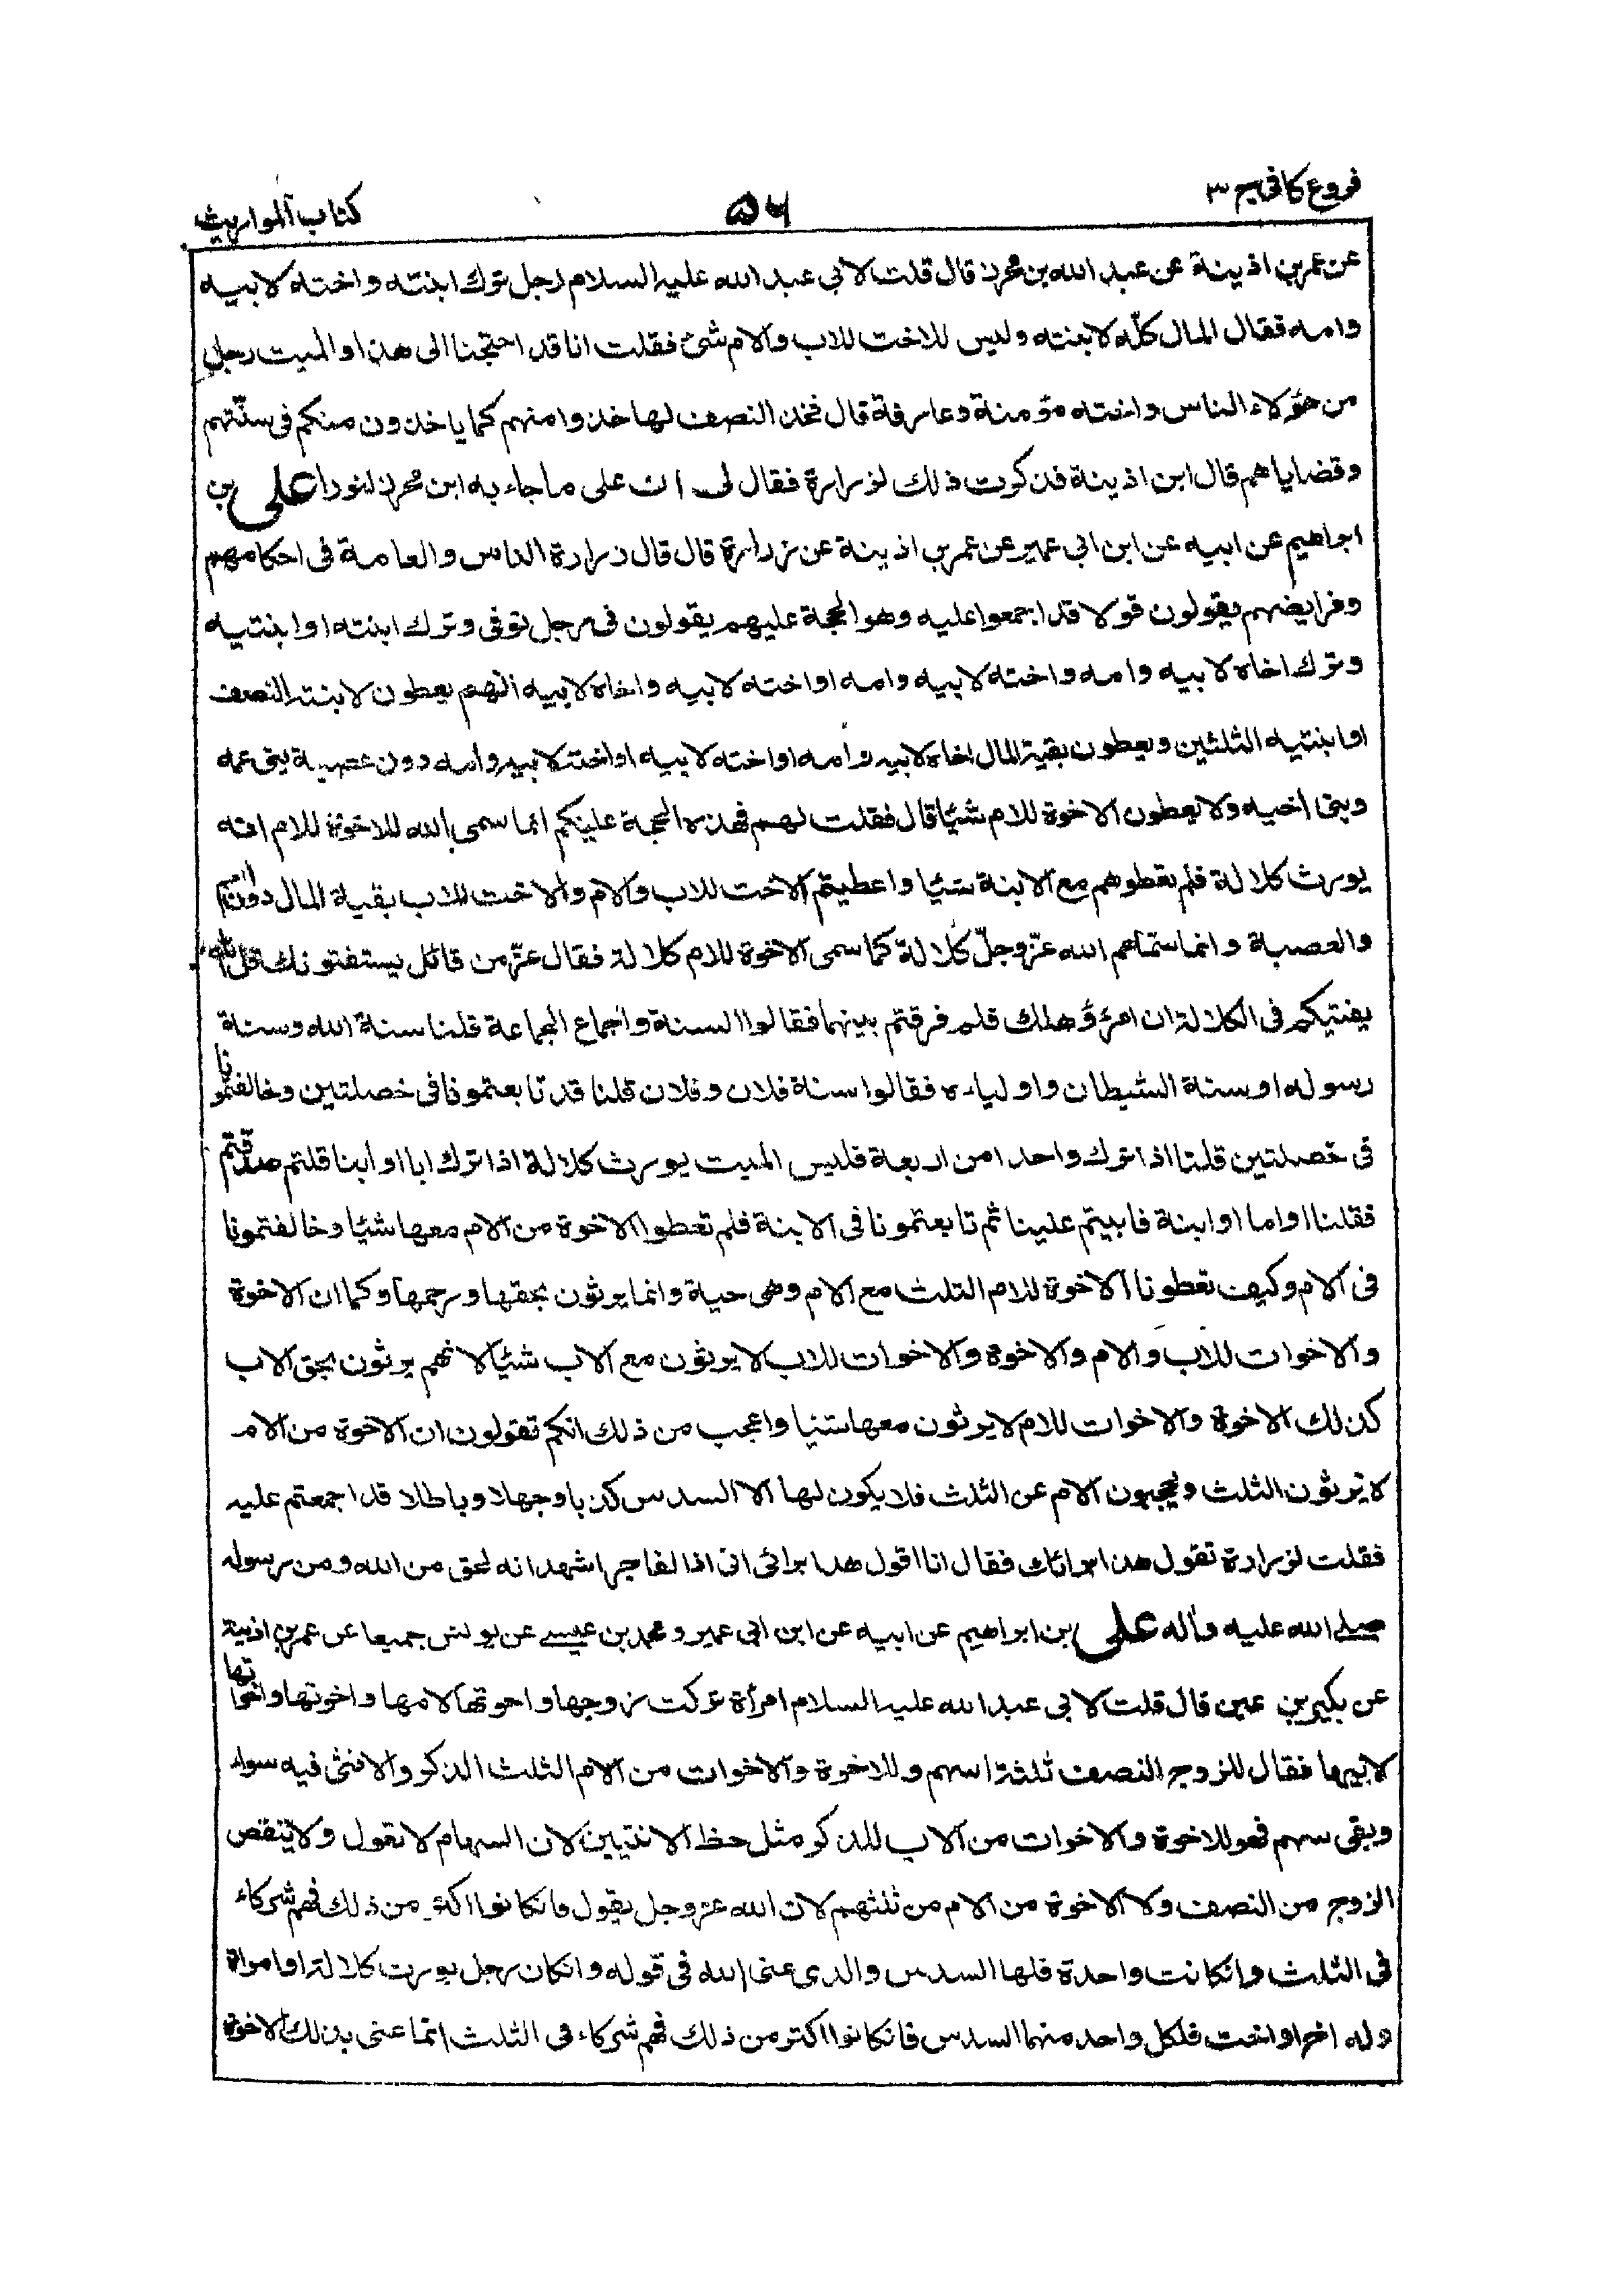 فروع كافى ج ٣
٥٦
كتاب المواريث
عن عمر بن اذينة عن عبد الله بن محرز قال قلت لابى عبد الله عليه السلام رجل ترك ابنته واخته لابيه
وامه فقال المال كلّه لابنته وليس للاخت للاب والام شئ فقلت انا قد احتجنا الى هذا والميت رجل
من هؤلاء الناس واخته مؤمنة وعارفة قال فخذ النصف لها خذوا منهم كما ياخذون منكم فى سنّتهم
وقضاياهم قال ابن اذينة فذكرت ذلك لزرارة فقال لى ان على ما جاء به ابن محرز لنورا على بن
ابراهيم عن ابيه عن ابن ابى عمير عن عمر بن اذينة عن زرارة قال قال زرارة الناس والعامة فى احكامهم
وفرايضهم يقولون قولا قد اجمعوا عليه وهو الحجة عليهم يقولون فى رجل توفى وترك ابنته او ابنتيه
وترك اخاه لابيه وامه واخته لابيه وامه او اخته لابيه واخاه لابيه انهم يعطون لابنته النصف
او ابنتيه الثلثين ويعطون بقية المال اخاه لابيه وامه او اخته لابيه او اخته لابيه وامه دون عصبة بنى عمه
وبنى اخيه ولا يعطون الاخوة للام شيئا قال فقلت لهم فهذه الحجة عليكم انما سمى الله للاخوة للام انه
يورث كلالة فلم تعطوهم مع الابنة شيئا واعطيتم الاخت للاب والام والاخت للاب بقية المال دون العم
والعصبة وانما سمّاهم الله عزّ وجلّ كلالة كما سمى الاخوة للام كلالة فقال عزّ من قائل يستفتونك قل الله
يفتيكم فى الكلالة ان امرؤ هلك فلم فرقتم بينهما فقالوا السنة واجماع الجماعة قلنا سنة الله وسنة
رسوله او سنة الشيطان واولياءه فقالوا سنة فلان وفلان قلنا قد تابعتمونا فى خصلتين وخالفتمونا
فى خصلتين قلنا اذا ترك واحدا من اربعة فليس الميت يورث كلالة اذا ترك ابا او ابنا قلتم صدقتم
فقلنا او اما او ابنة فابيتم علينا ثم تابعتمونا فى الابنة فلم تعطوا الاخوة من الام معها شيئا وخالفتمونا
فى الام وكيف تعطونا الاخوة للام الثلث مع الام وهى حية وانما يرثون بحقها ورحمها وكما ان الاخوة
والاخوات للاب والام والاخوة والاخوات للاب لا يرثون مع الاب شيئا لانهم يرثون بحق الاب
كذلك الاخوة والاخوات للام لا يرثون معها شيئا واعجب من ذلك انكم تقولون ان الاخوة من الام
لا يرثون الثلث ويحجبون الام عن الثلث فلا يكون لها الا السدس كذبا وجهلا وباطلا قد اجمعتم عليه
فقلت لزرارة تقول هذا برائك فقال انا اقول هذا برائى انى اذا لفاجر اشهد انه لحق من الله ومن رسوله
صلى الله عليه وآله على بن ابراهيم عن ابيه عن ابن ابى عمير ومحمد بن عيسى عن يونس جميعا عن عمر بن اذينة
عن بكير بن عين قال قلت لابى عبد الله عليه السلام امرأة تركت زوجها واخوتها لامها واخوتها واخواتها
لابيها فقال للزوج النصف ثلثة اسهم وللاخوة والاخوات من الام الثلث الذكر والانثى فيه سواء
وبقى سهم فهو للاخوة والاخوات من الاب للذكر مثل حظ الانثيين لان السهام لا تعول ولا ينقص
الزوج من النصف ولا الاخوة من الام من ثلثهم لان الله عز وجل يقول فانكانوا اكثر من ذلك فهم شركاء
فى الثلث وانكانت واحدة فلها السدس والذى عنى الله فى قوله وانكان رجل يورث كلالة او امراة
وله اخ او اخت فلكل واحد منهما السدس فانكانوا اكثر من ذلك فهم شركاء فى الثلث انما عنى بذلك الاخوة